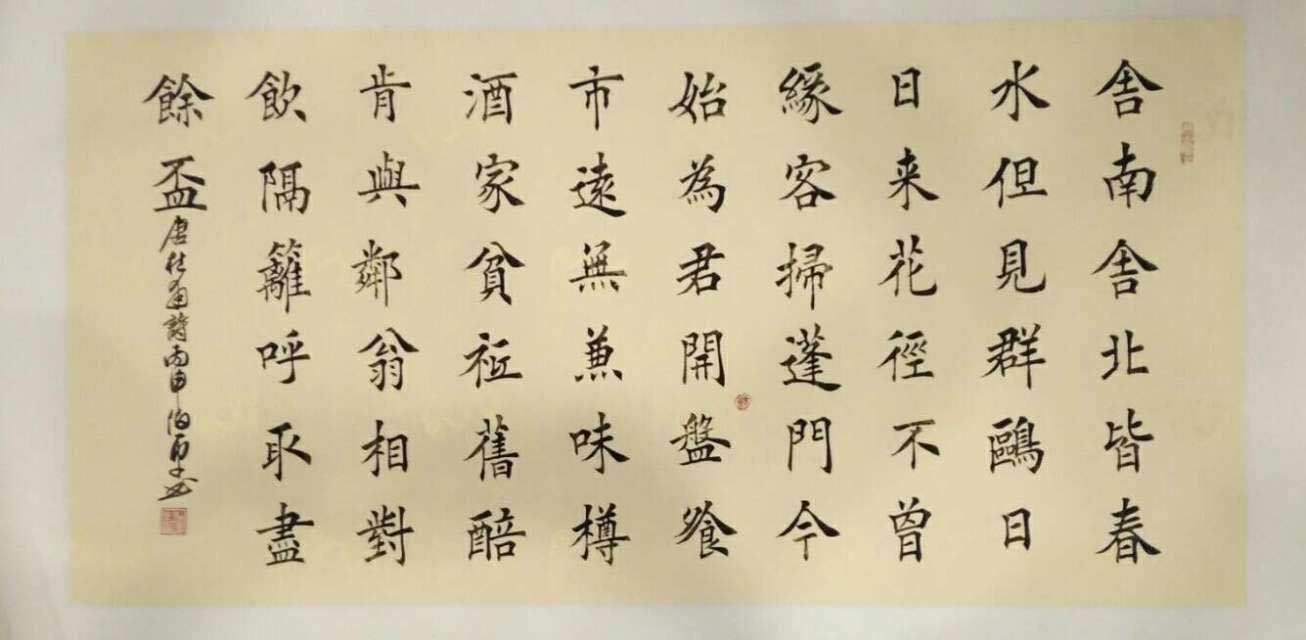 舎南舎北皆春
水但見群鷗日
日来花徑不曾
緣客掃蓬門今
始為君開盤飧
市遠無兼味樽
酒家貧祗舊醅
肯與鄰翁相對
飲隔籬呼取盡
餘盃
唐杜甫詩丙申